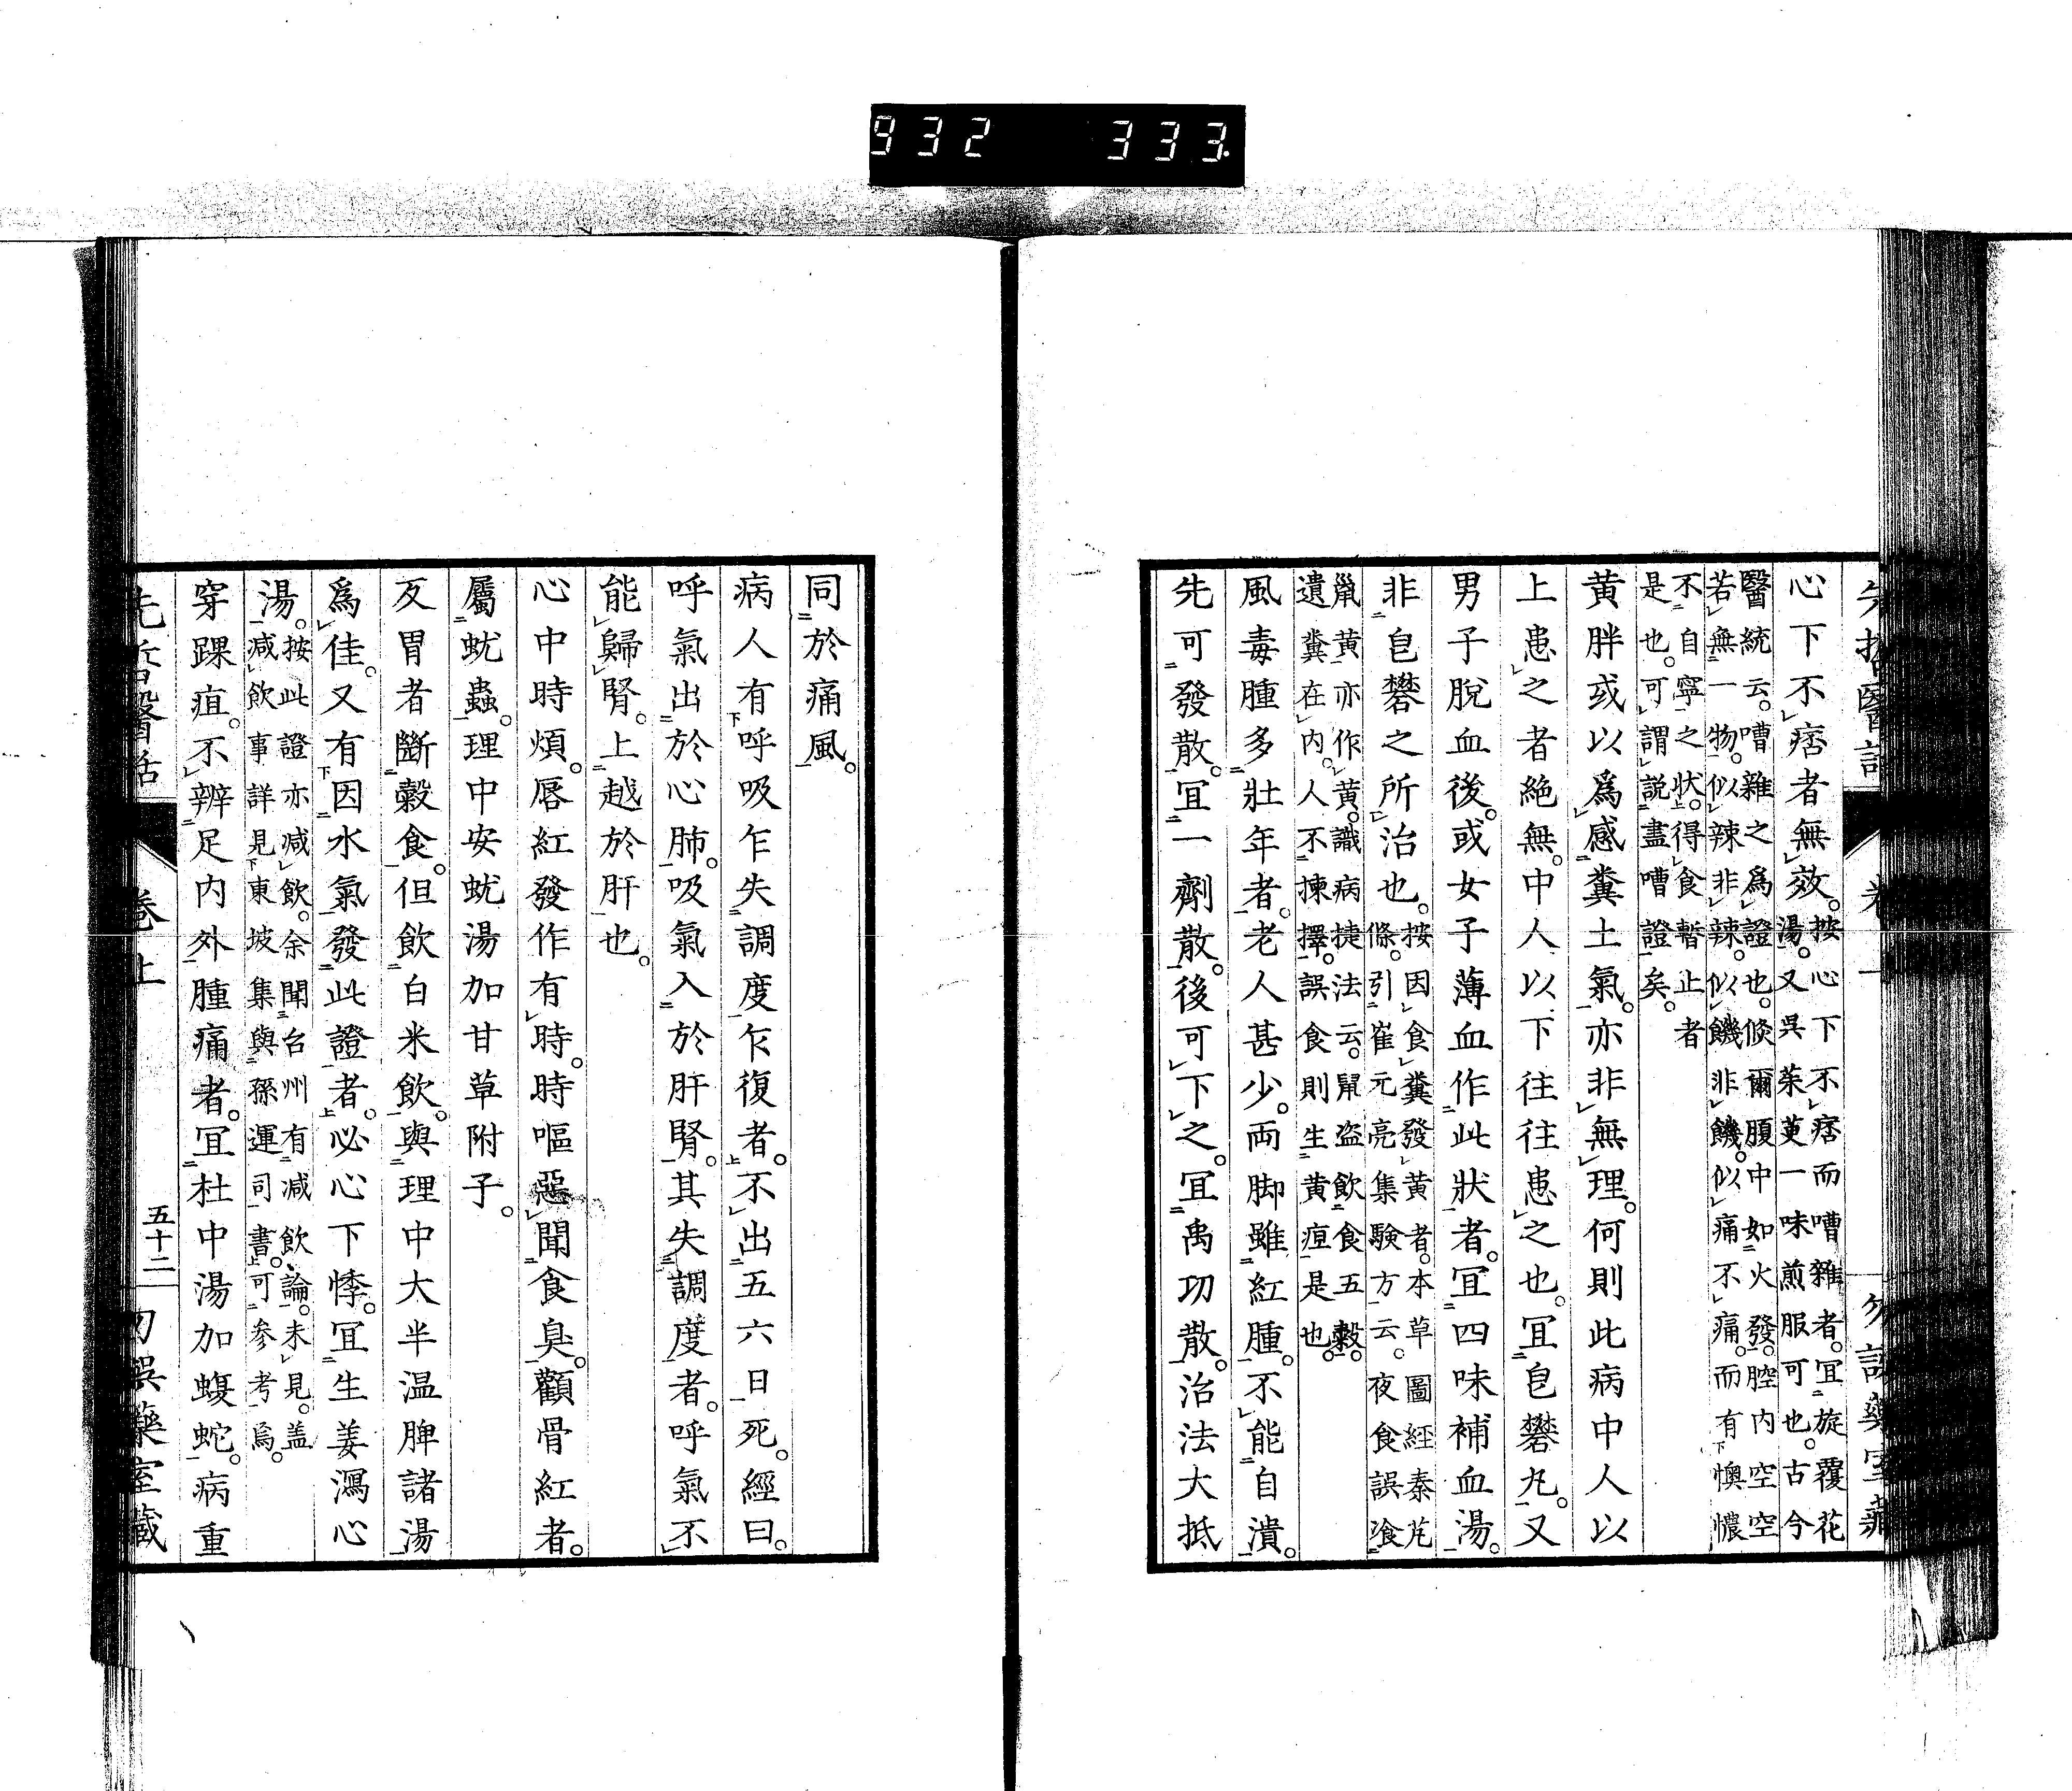 932 333
心下不痞者無效。按心下不痞而嘈雜者。宜旋覆花
湯。又呉茱萸一味煎服可也。古今
醫統云。嘈雜之爲證也。倐爾腹中如火發。腔内空空
若無一物。似辣非辣。似饑非饑。似痛不痛。而有懊憹
不自寧之状。得食暫止者
是也。可謂説盡嘈證矣。
黄胖或以爲感糞土氣。亦非無理。何則此病中人以
上患之者絶無。中人以下往往患之也。宜皀礬丸。又
男子脫血後。或女子薄血作此狀者。宜四味補血湯。
非皀礬之所治也。按因食糞發黄者。本草圖經秦艽
條。引崔元亮集驗方云。夜食誤飡
鼠黄亦作黄。識病捷法云。鼠盗飲食五穀。
遺糞在内。人不揀擇。誤食則生黄疸是也。
風毒腫多壯年者。老人甚少。両脚雖紅腫。不能自潰。
先可發散。宜一劑散。後可下之。宜禹功散。治法大抵
同於痛風。
病人有呼吸乍失調度乍復者。不出五六日死。經曰。
呼氣出於心肺。吸氣入於肝腎。其失調度者。呼氣不
能歸腎。上越於肝也。
心中時煩。唇紅發作有時。時嘔惡聞食臭。顴骨紅者。
屬蚘蟲。理中安蚘湯加甘草附子。
反胃者斷穀食。但飲白米飲。與理中大半温脾諸湯
爲佳。又有因水氣發此證者。必心下悸。宜生姜瀉心
湯。按此證亦减飲。余聞台州有减飲論。未見。盖
减飲事詳見東坡集與孫運司書。可參考焉。
穿踝疽。不辨足内外腫痛者。宜杜中湯加蝮蛇。病重
先哲醫話
卷上
五十二
勿誤藥室藏